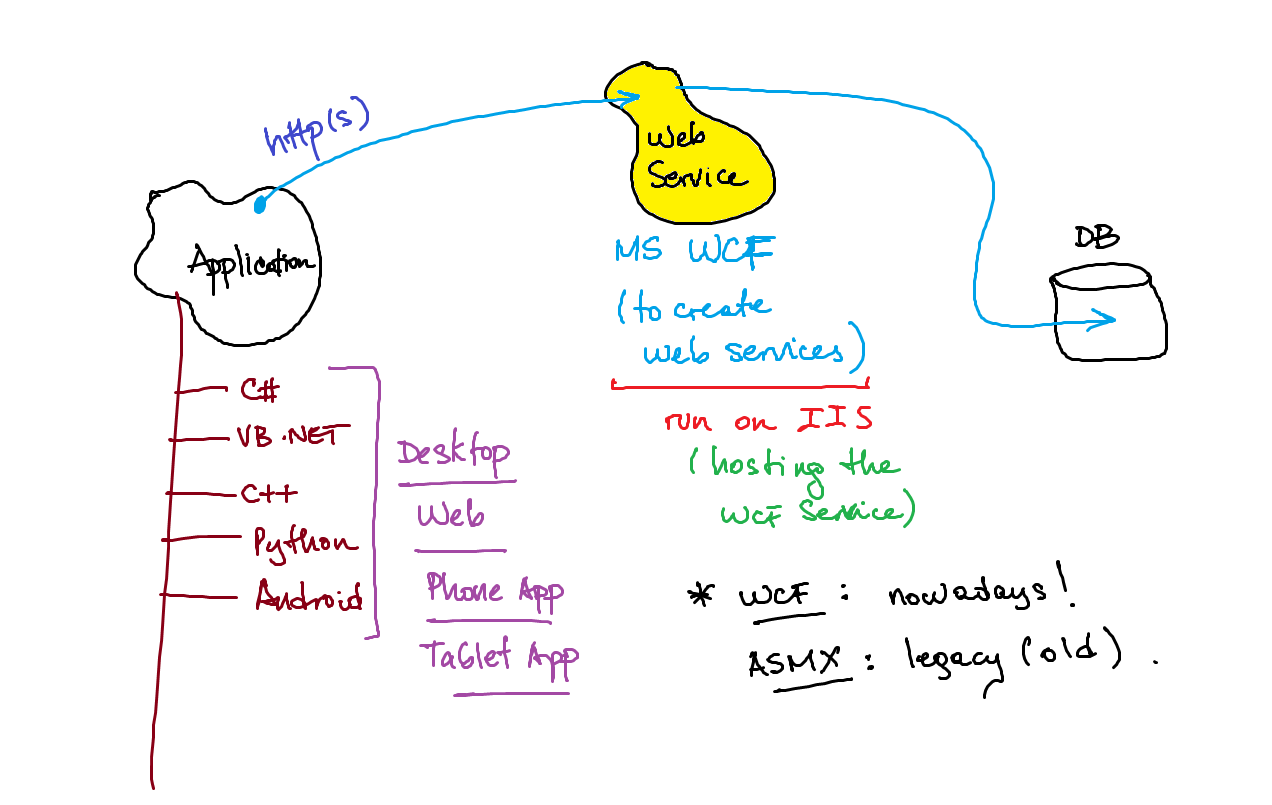 http(s)
Web
Service
Application
DB
MS WCF
(to create
web services)
run on IIS
(hosting the
WCF Service)
C#
VB.NET
C++
Python
Android
Desktop
Web
Phone App
Tablet App
* WCF : nowadays!
ASMX : legacy (old).